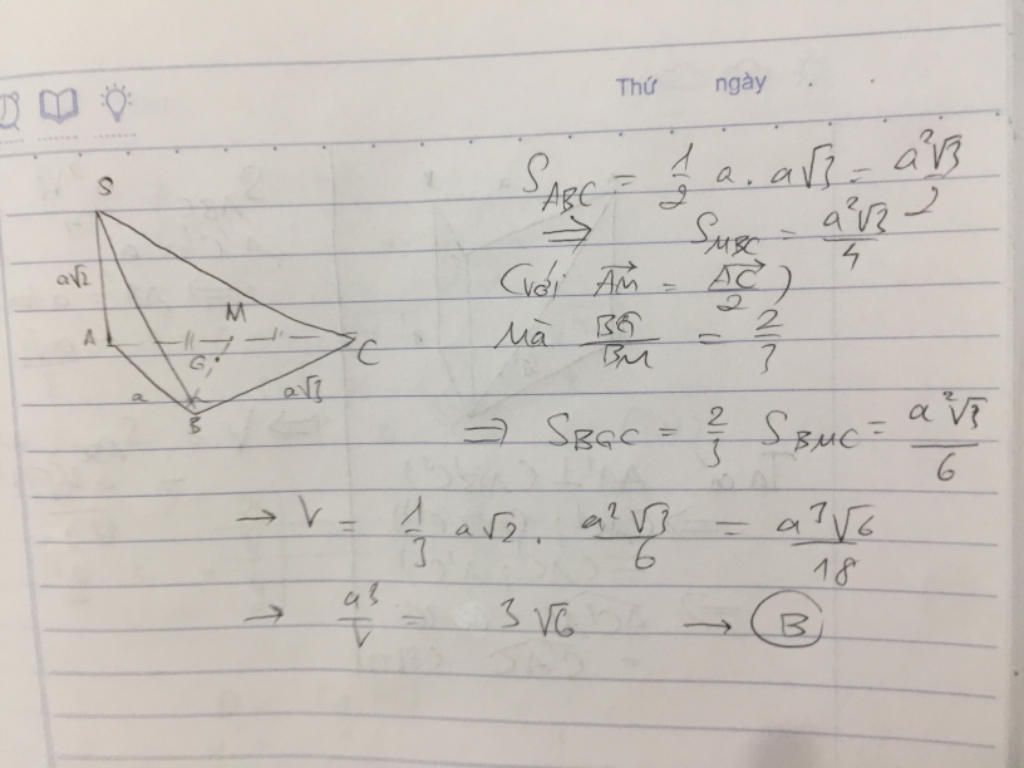 Thứ ngày
S
a√2
A
M
G
C
a
a√3
B
S_ABC = 1/2 a . a√3 = a²√3/2
⇒ S_MBC = a²√3/4
(với AM→ = AC→/2)
Mà BG/BM = 2/3
⇒ S_BGC = 2/3 S_BMC = a²√3/6
→ V = 1/3 a√2 . a²√3/6 = a³√6/18
→ a³/V = 3√6 → B